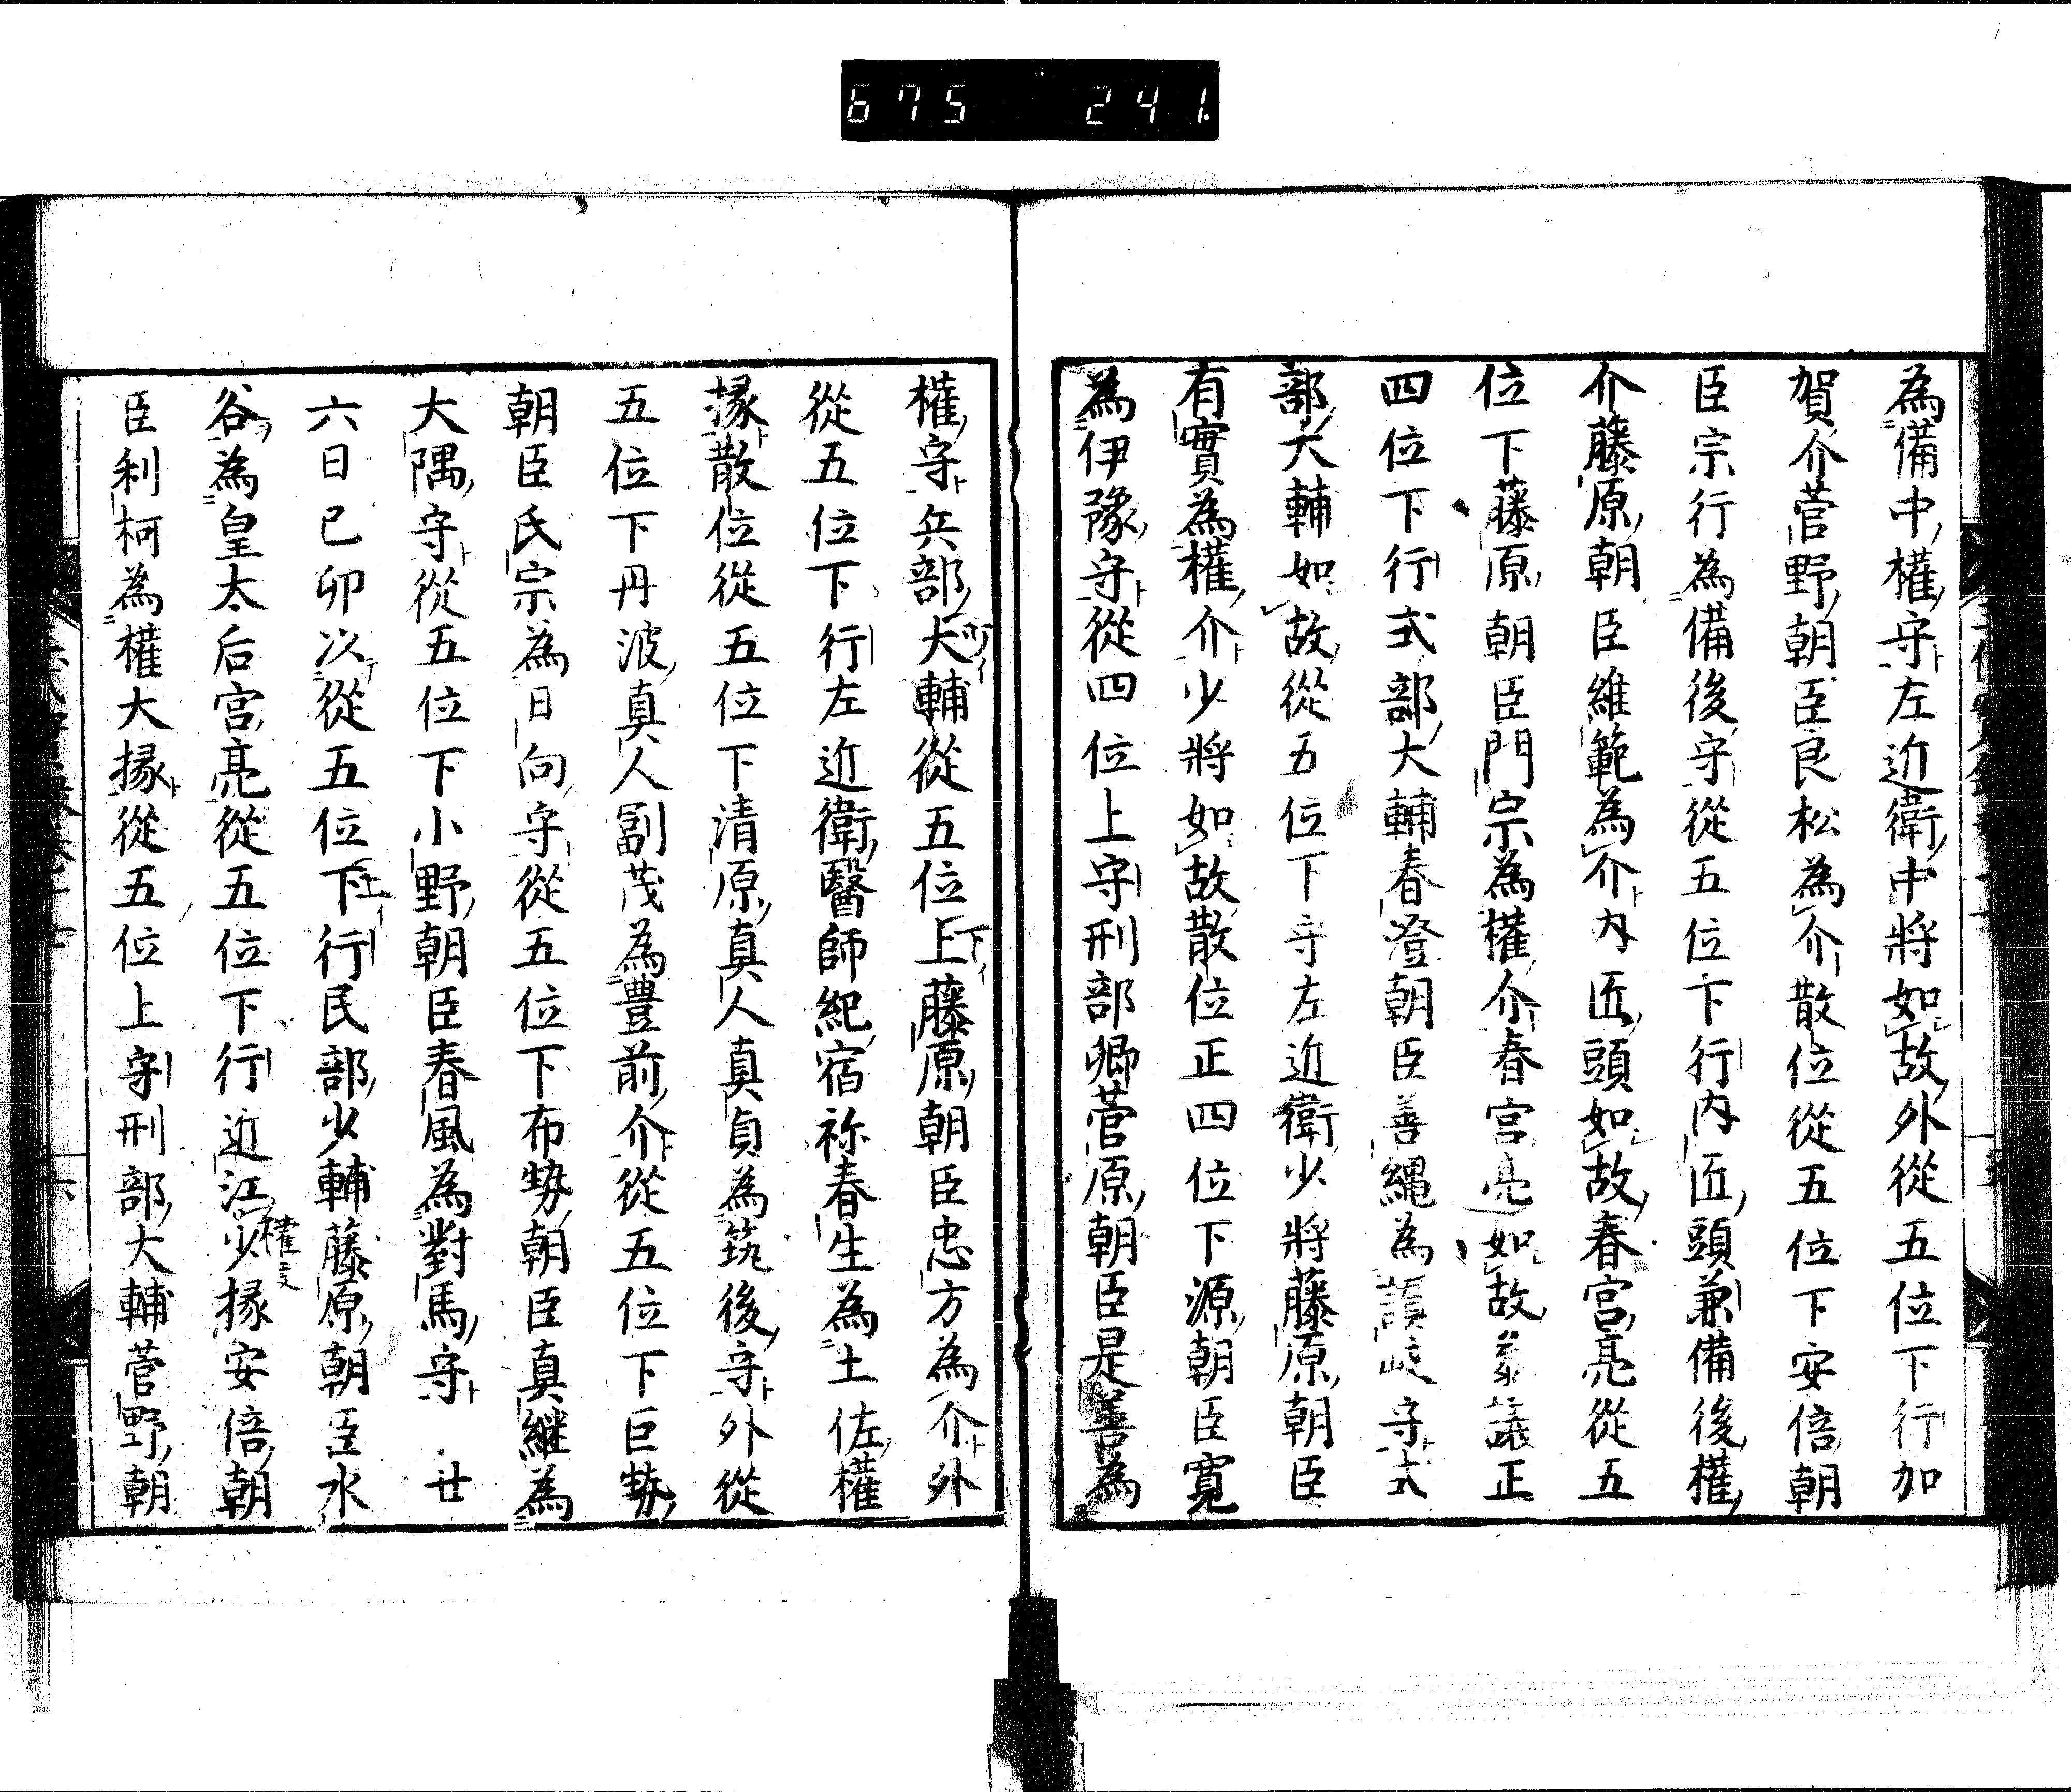 675 241.
為備中權守左近衛中將如故外從五位下行加
賀介菅野朝臣良松為介散位從五位下安倍朝
臣宗行為備後守從五位下行內匠頭兼備後權
介藤原朝臣維範為介內匠頭如故春宮亮從五
位下藤原朝臣門宗為權介春宮亮如故參議正
四位下行式部大輔春澄朝臣善繩為讚岐守式
部大輔如故從五位下守左近衛少將藤原朝臣
有實為權介少將如故散位正四位下源朝臣寬
為伊豫守從四位上守刑部卿菅原朝臣是善為
權守兵部大輔從五位上藤原朝臣忠方為介外
少イ
下イ
從五位下行左近衛醫師紀宿祢春生為土佐權
掾散位從五位下清原真人真貞為筑後守外從
五位下丹波真人副茂為豊前介從五位下巨勢
朝臣氏宗為日向守從五位下布勢朝臣真継為
大隅守從五位下小野朝臣春風為對馬守 廿
六日已卯以從五位下行民部少輔藤原朝臣水
上イ
谷為皇太后宮亮從五位下行近江少掾安倍朝
權
臣利柯為權大掾從五位上守刑部大輔菅野朝